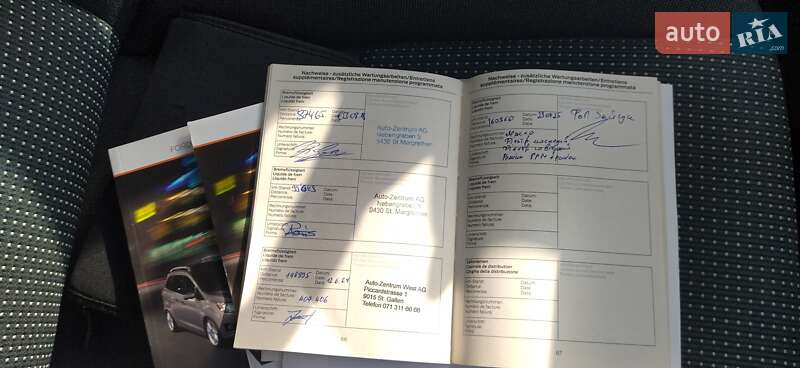 auto RIA .com
FORD
Nachweise - zusätzliche Wartungsarbeiten/Entretiens
supplémentaires/Registrazione manutenzione programmata
Bremsflüssigkeit
Liquide de frein
Liquido freni
km-Stand
Distance
Percorrenza
Datum
Date
Data
Rechnungsnummer
Numéro de facture
Numero fattura
Unterschrift
Signature
Firma
Auto-Zentrum AG
Nebengraben 5
9430 St. Margrethen
Bremsflüssigkeit
Liquide de frein
Liquido freni
km-Stand
Distance
Percorrenza
Datum
Date
Data
Rechnungsnummer
Numéro de facture
Numero fattura
Unterschrift
Signature
Firma
Auto-Zentrum AG
Nebengraben 5
9430 St. Margrethen
Bremsflüssigkeit
Liquide de frein
Liquido freni
km-Stand
Distance
Percorrenza
148995
Datum
Date
Data
Rechnungsnummer
Numéro de facture
Numero fattura
404 406
Unterschrift
Signature
Firma
Auto-Zentrum West AG
Piccardstrasse 1
9015 St. Gallen
Telefon 071 311 66 66
66
Nachweise - zusätzliche Wartungsarbeiten/Entretiens
supplémentaires/Registrazione manutenzione programmata
Bremsflüssigkeit
Liquide de frein
Liquido freni
km-Stand
Distance
Percorrenza
160360
Datum
Date
Data
Rechnungsnummer
Numéro de facture
Numero fattura
Unterschrift
Signature
Firma
Bremsflüssigkeit
Liquide de frein
Liquido freni
km-Stand
Distance
Percorrenza
Datum
Date
Data
Rechnungsnummer
Numéro de facture
Numero fattura
Unterschrift
Signature
Firma
Zahnriemen
Courroie de distribution
Cinghia della distribuzione
km-Stand
Distance
Percorrenza
Datum
Date
Data
Rechnungsnummer
Numéro de facture
Numero fattura
Unterschrift
Signature
Firma
67